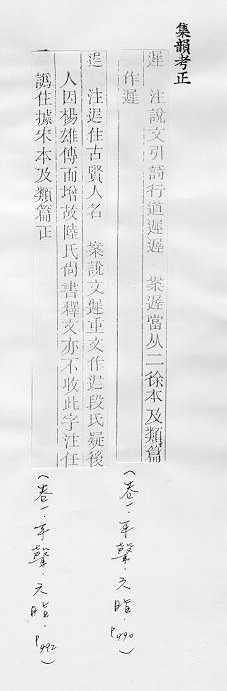 集韻考正
遲　注說文引詩行道遲遲　案遲當从二徐本及類篇
作遟
迡　注迡任古賢人名　案說文遲重文作迡段氏疑後
人因楊雄傳而增故陸氏尚書釋文亦不收此字注任
譌住據宋本及類篇正
（卷一．平聲．
P990）
（卷一．平聲．
P992）